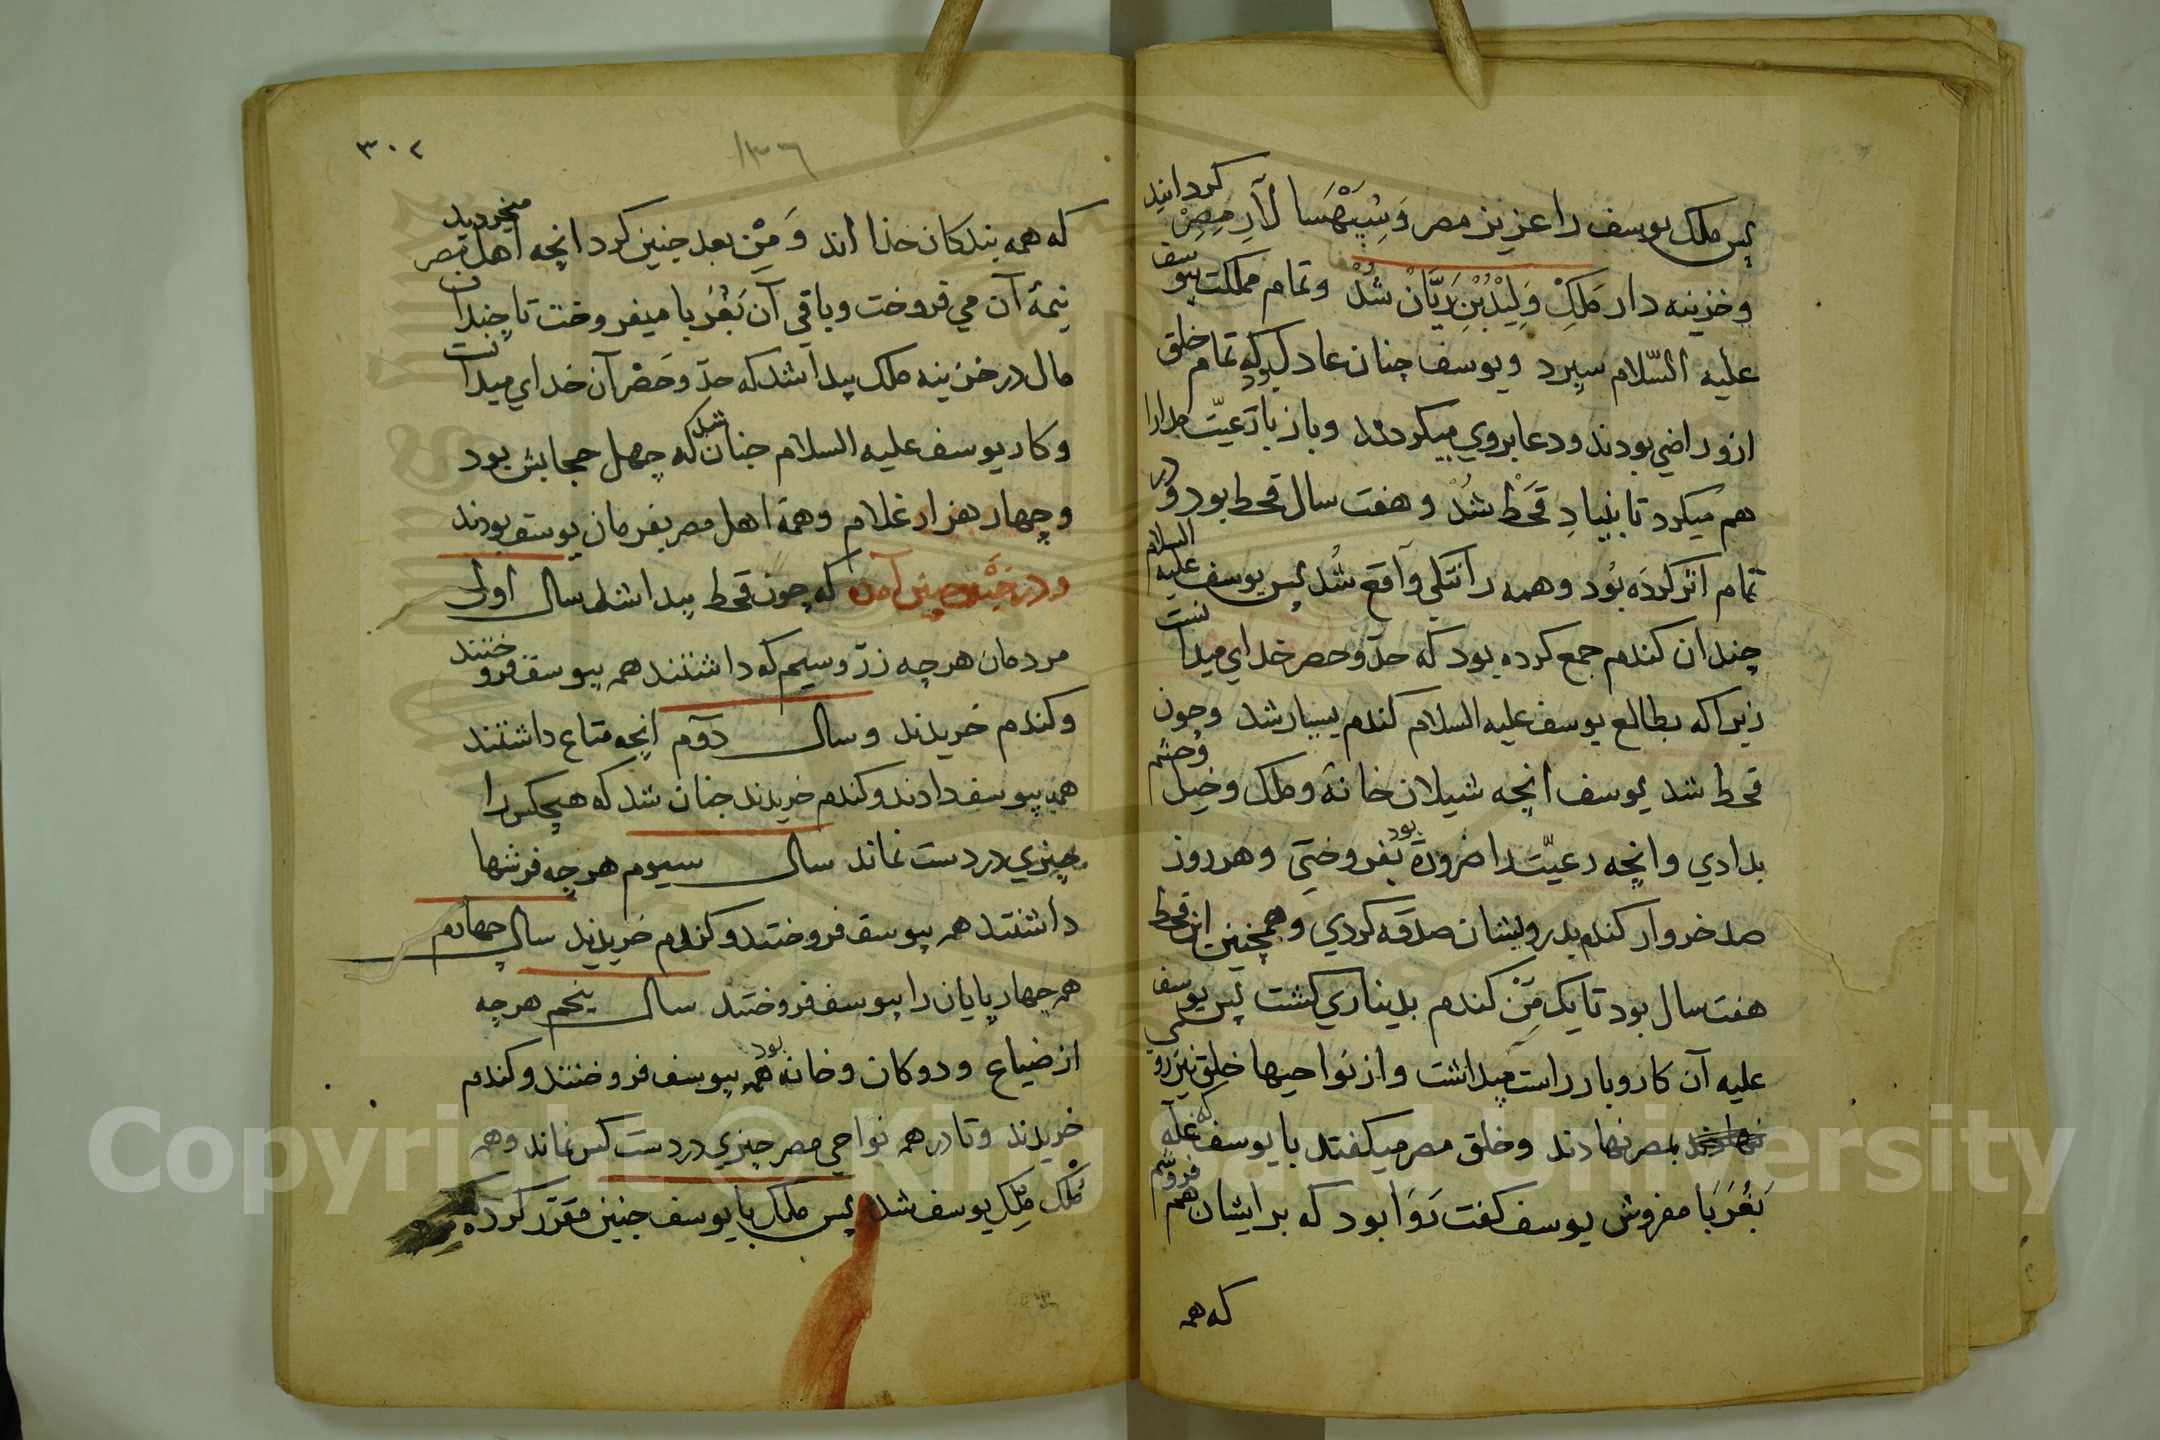 پس ملک یوسف را عزیز مصر وَسِپَهْسا لارِ مِصِرْ کردانید
و خزینه دار مَلِکِ وَلِیْدْبْنِ رَیَّانْ شُدْ و تمام مملکت بیوسف
علیه السّلام سپرد و یوسف چنان عادل بود که تمام خلق
ازو راضي بودند و دعا بروي میکردند و باز با رَعیّت مدارا
هم میکرد تا بنیادِ قَحَطْ شُدْ و هفت سال قحط بود و در
تمام اثر کرده بُود و همه را تنکي واقع شُد پس یوسف علیه السلام
چندان کندم جمع کرده بود که حدّ و حصر خداي میدانست
زیرا که بطالع یوسف علیه السلام کندم بسیار شد و چون
قحط شد یوسف انچه شیلان خانهٔ و ملک و خیل و حشم
بدادي و انچه رعیّت را ضرورة بود بفروختي و هر روز
صد خروار کندم بدرویشان صدقه کردي و همچنین این قحط
هفت سال بود تا یک مَنْ کندم بدیناري کشت پس یوسف
علیه آن کاروبار راست میداشت و از نواحیها خلق نیز روي
بمصر نهادند و خلق مصر میکفتند با یوسف که غلّه
بَغُرَبَا مفروش یوسف کفت رَوَا بود که بر ایشان هم فروشم
که همه
۳۰۲
۱۳٦
که همه بندکان خدا اند وَ مِنْ بعد چنین کرد انچه اهل مصر میخریدند
نیمهٔ آن مي فروخت و باقي آن بَغُرَبا میفروخت تا چندان
مال در خزینه ملک پیدا شد که حدّ و حَصْر آن خداي میدانست
و کار یوسف علیه السلام چنان شد که چهل حجابش بود
و چهار هزار غلام و همهٔ اهل مصر بفرمان یوسف بودند
و در خبر چنین آمده که چون قحط پیدا شد سال اول
مردمان هر چه زرّ و سیم که داشتند همه بیوسف فروختند
و کندم خریدند و سال دوّم انچه متاع داشتند
همه بیوسف دادند و کندم خریدند چنان شد که هیچکس را
چیزي در دست نماند سال سیوم هر چه فرشها
داشتند همه بیوسف فروختند و کندم خریدند سال چهارم
همه چهار پایان را بیوسف فروختند سال پنجم هر چه
از ضیاع و دوکان و خانه بود همه بیوسف فروختند و کندم
خریدند و تا در همه نواحي مصر چیزي در دست کس نماند و همه
مُلک مِلک یوسف شد پس ملک با یوسف چنین مقرّر کرد که
Copyright © King Saud University